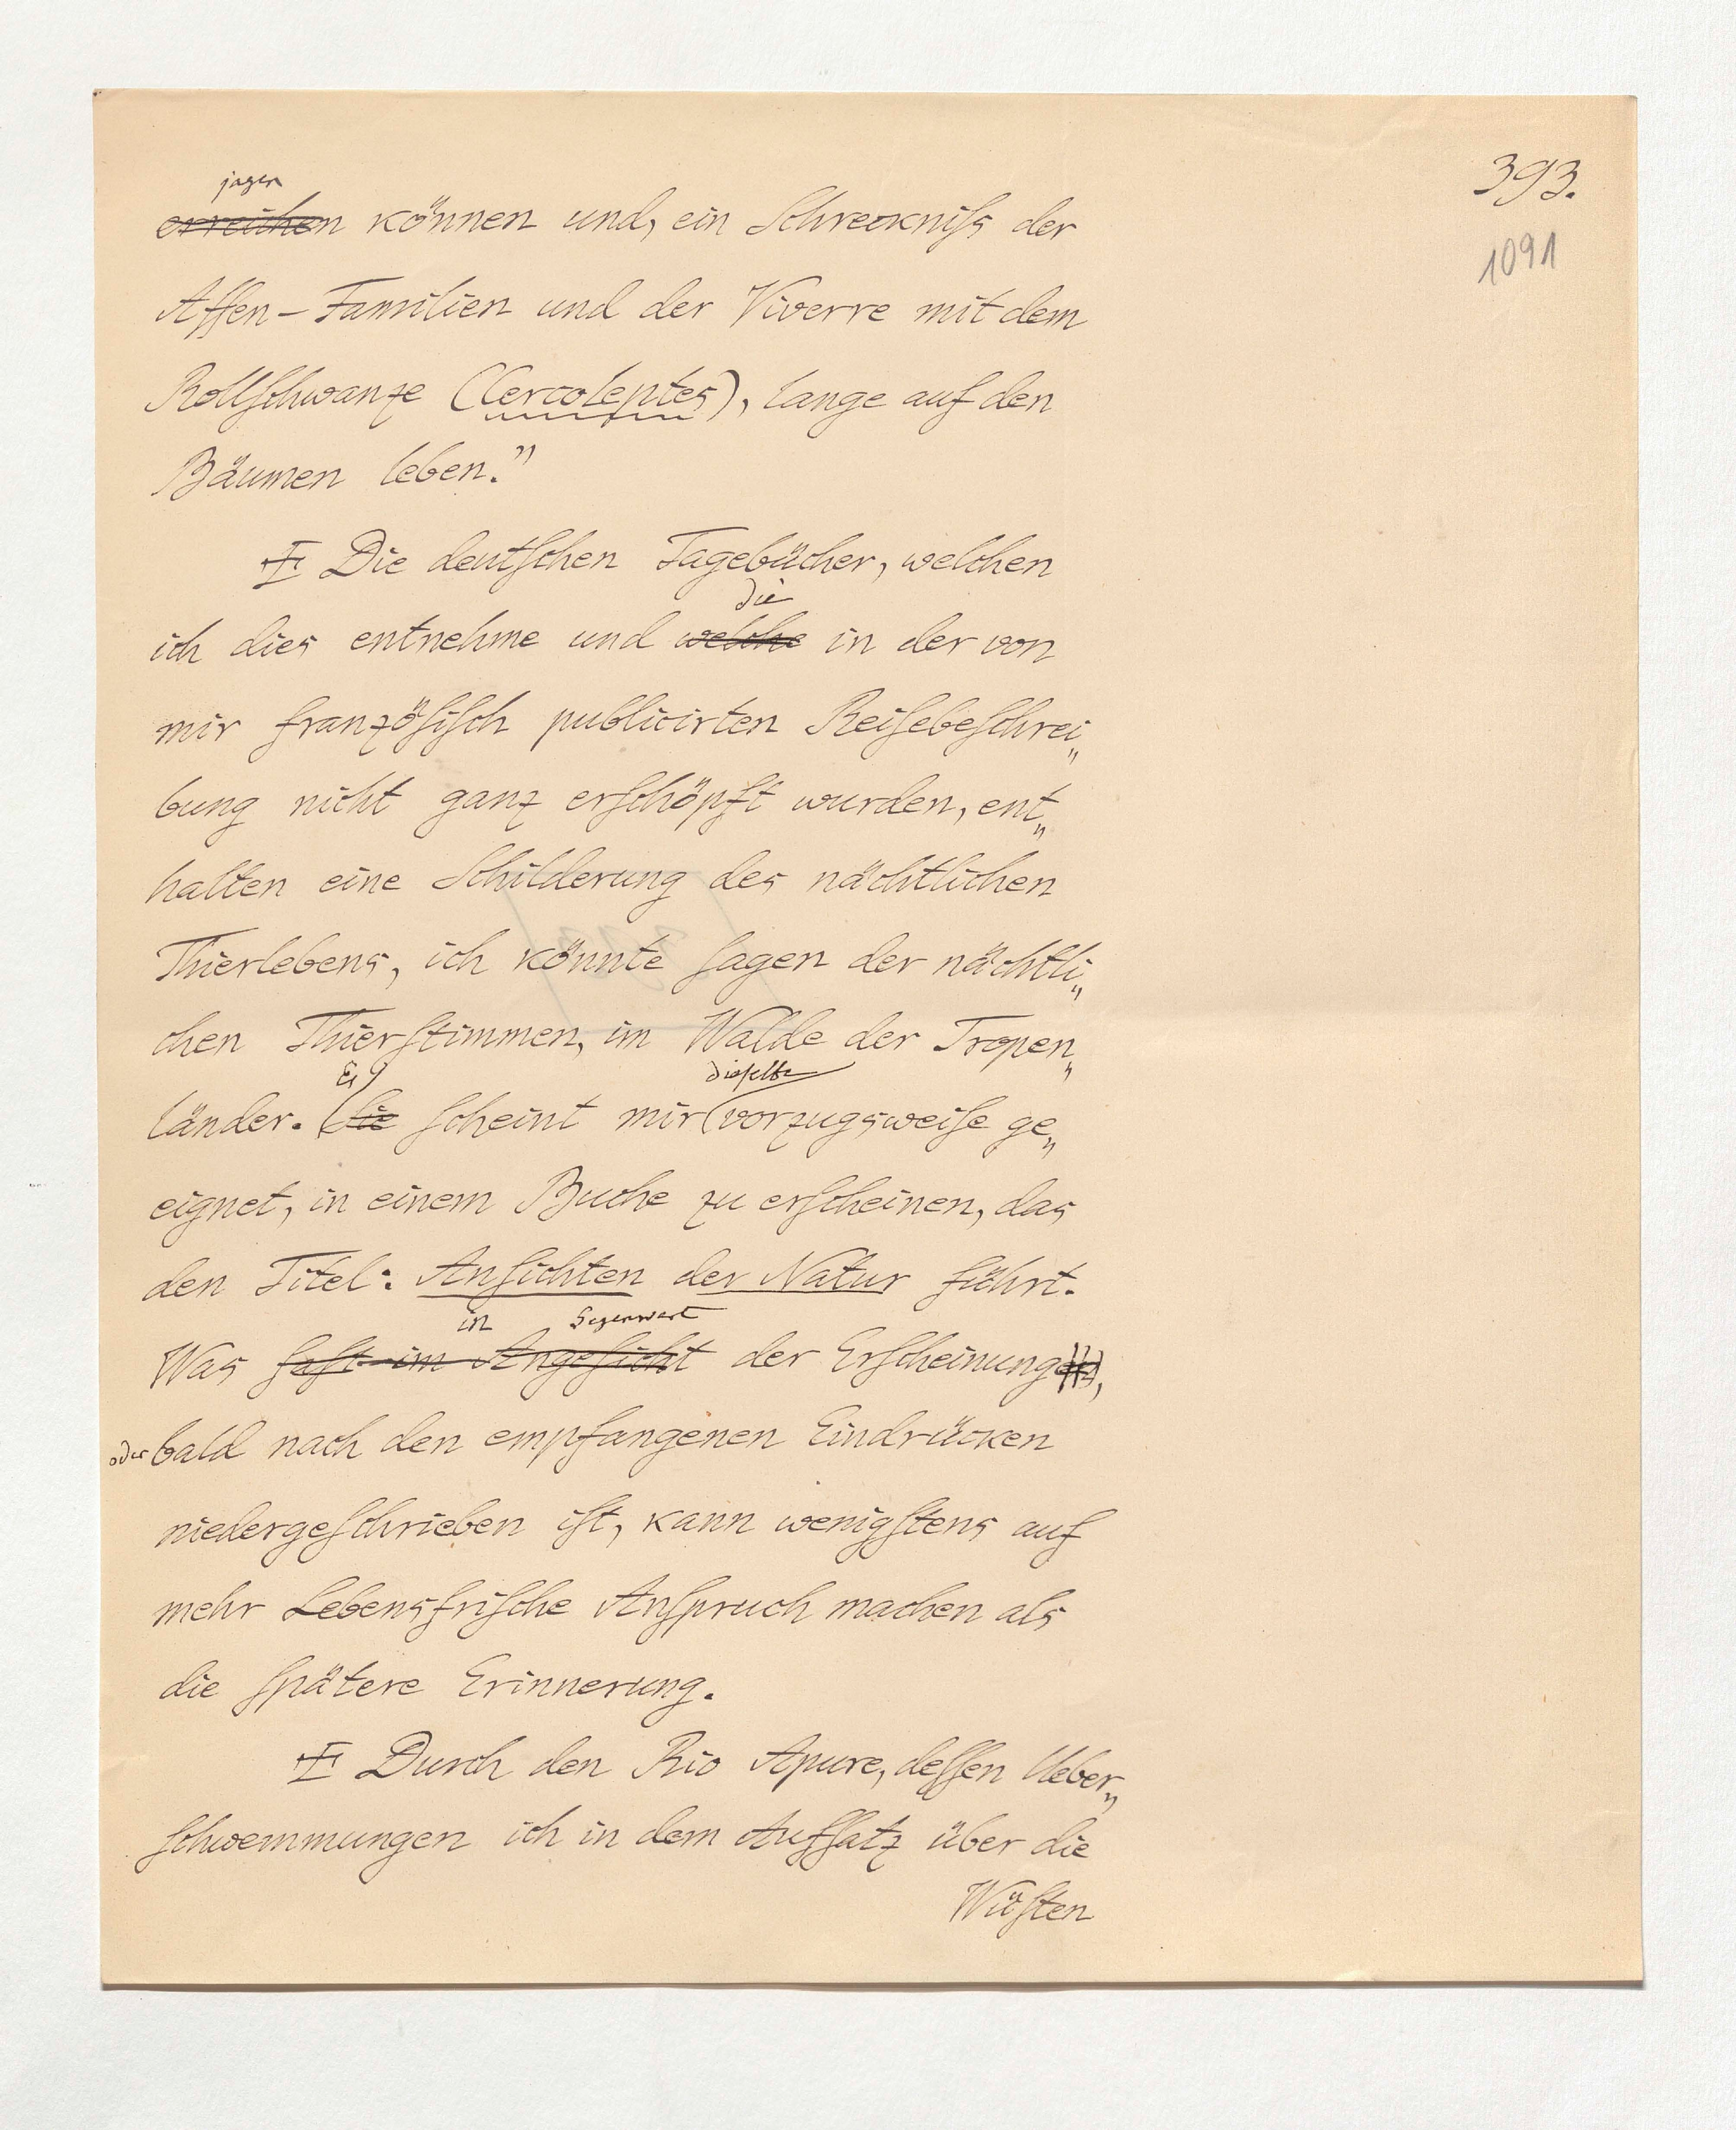 393.
1091
jagen
erreichen können und, ein Schreckniſs der
Affen-Familien und der Viverre mit dem
Rollſchwanze (Cercoleptes), lange auf den
Bäumen leben."
Die deutſchen Tagebücher, welchen
die
ich dies entnehme und welche in der von
mir franzöſiſch publicirten Reiſebeſchrei„
bung nicht ganz erſchöpft wurden, ent„
halten eine Schilderung des nächtlichen
Thierlebens, ich könnte ſagen der nächtli„
chen Thierſtimmen, im Walde der Tropen„
Es dieſelbe
länder. Sie ſcheint mir vorzugsweiſe ge„
eignet, in einem Buche zu erſcheinen, das
den Titel: Anſichten der Natur führt.
in Gegenwart
Was faſt im Angeſicht der Erſcheinungen,
oder bald nach den empfangenen Eindrücken
niedergeſchrieben iſt, kann wenigſtens auf
mehr Lebensfriſche Anſpruch machen als
die ſpätere Erinnerung.
Durch den Rio Apure, deſſen Ueber„
ſchwemmungen ich in dem Aufſatz über die
Wüſten